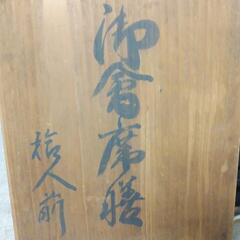 御會席膳
拾人前